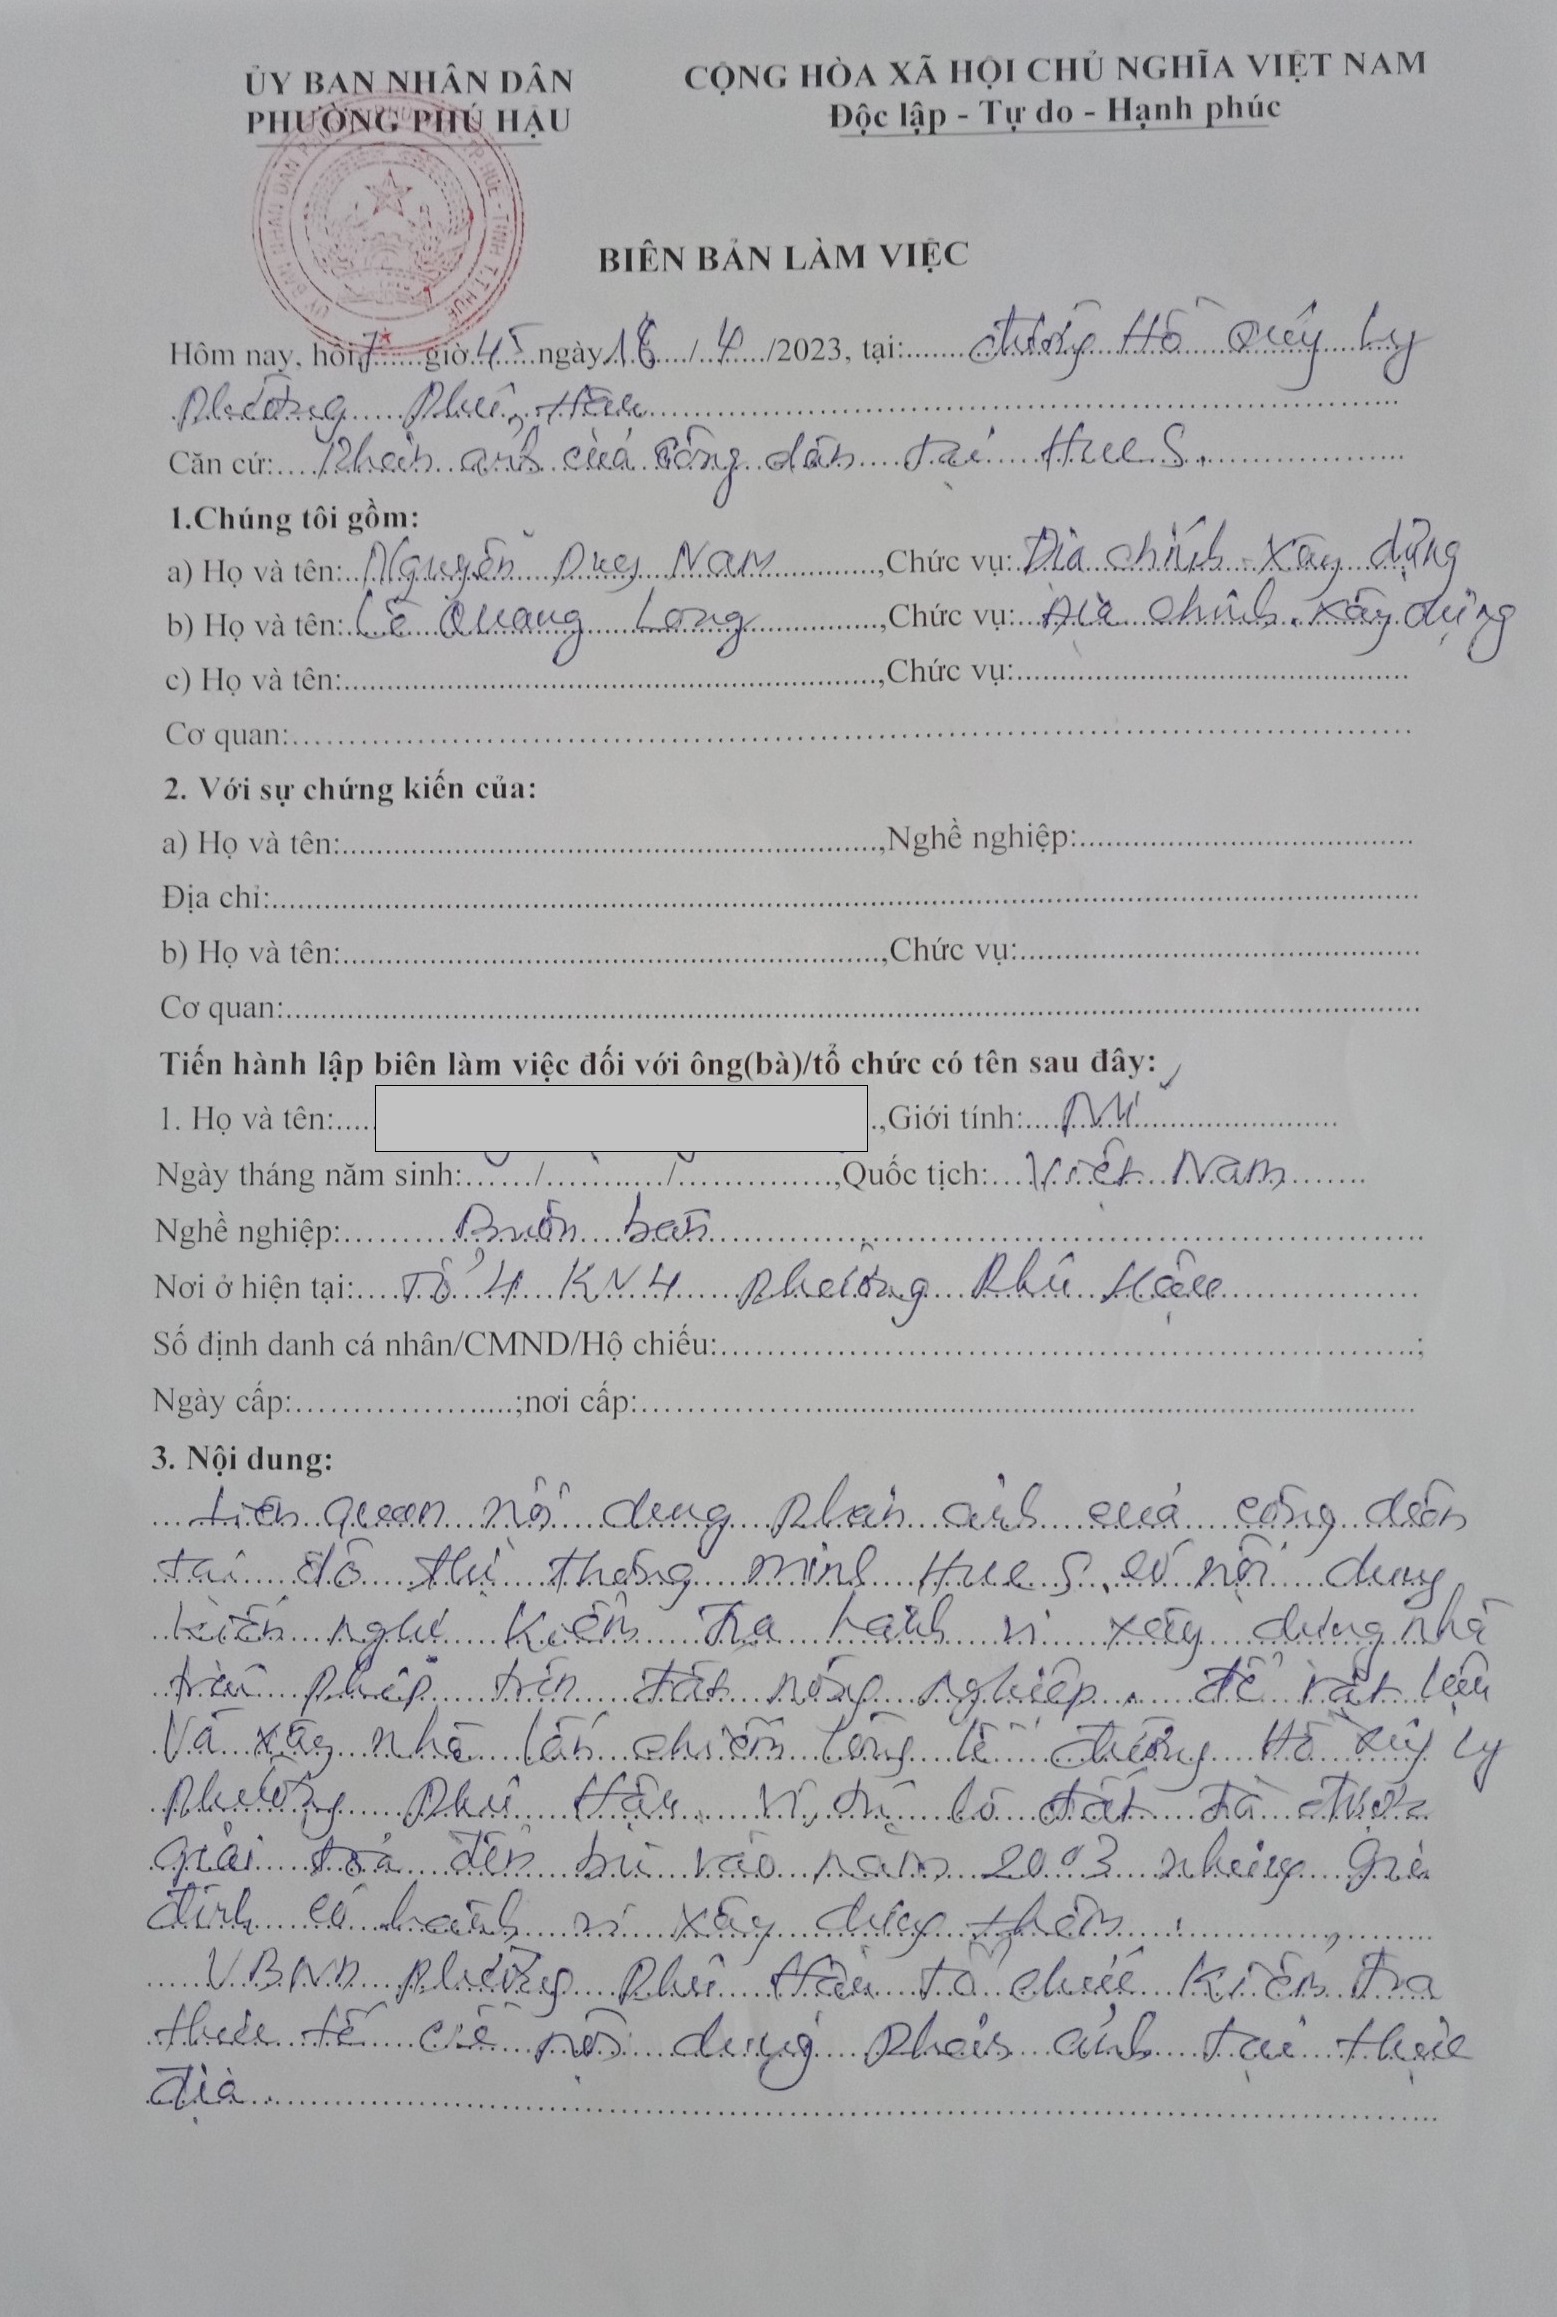 ỦY BAN NHÂN DÂN
PHƯỜNG PHÚ HẬU
CỘNG HÒA XÃ HỘI CHỦ NGHĨA VIỆT NAM
Độc lập - Tự do - Hạnh phúc
BIÊN BẢN LÀM VIỆC
Hôm nay, hồi 7 giờ 45 ngày 18 / 4 /2023, tại: đường Hồ Quý Ly
Phường Phú Hậu
Căn cứ: Phản ánh của công dân tại Hue S.
1.Chúng tôi gồm:
a) Họ và tên: Nguyễn Duy Nam ,Chức vụ: Địa chính - Xây dựng
b) Họ và tên: Lê Quang Long ,Chức vụ: Địa chính - xây dựng
c) Họ và tên: ,Chức vụ:
Cơ quan:
2. Với sự chứng kiến của:
a) Họ và tên: ,Nghề nghiệp:
Địa chỉ:
b) Họ và tên: ,Chức vụ:
Cơ quan:
Tiến hành lập biên làm việc đối với ông(bà)/tổ chức có tên sau đây:
1. Họ và tên: ,Giới tính: Nữ
Ngày tháng năm sinh: / / ,Quốc tịch: Việt Nam
Nghề nghiệp: Buôn bán
Nơi ở hiện tại: Tổ 4 KV4 Phường Phú Hậu
Số định danh cá nhân/CMND/Hộ chiếu: ;
Ngày cấp: ;nơi cấp:
3. Nội dung:
Liên quan nội dung phản ánh của công dân
tại đô thị thông minh Hue S, có nội dung
kiến nghị kiểm tra hành vi xây dựng nhà
trái phép trên đất nông nghiệp, để rất lâu
Và xây nhà lấn chiếm lòng lề đường Hồ Quý Ly
Phường Phú Hậu, vị trí lô đất đã được
giải tỏa đền bù vào năm 2003 nhưng gia
đình có hành vi xây dựng thêm.
UBND phường Phú Hậu tổ chức kiểm tra
thực tế nội dung phản ánh tại thực
địa.